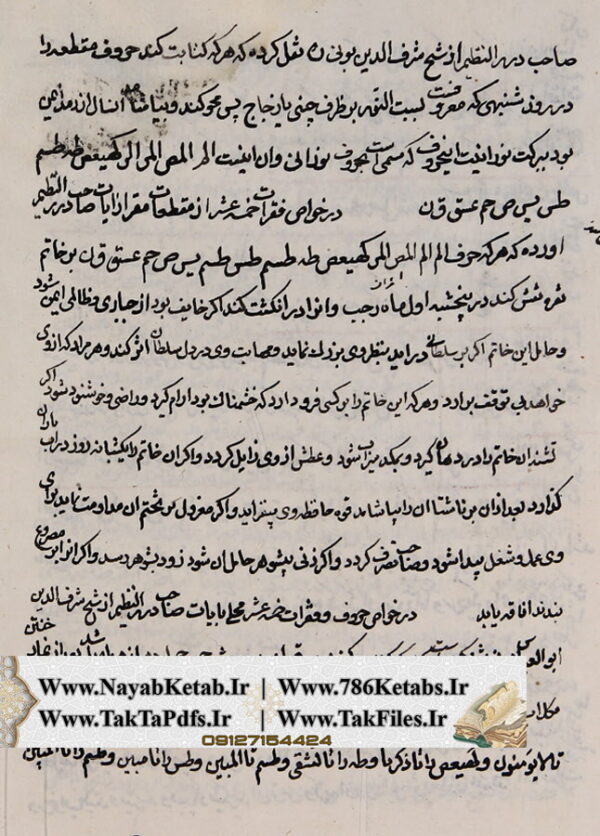 صاحب در النظیم از شیخ شرف الدین بونی ره نقل کرده که هر که کتابت کند حروف مقطعه را
در روز شنبهی که معروفست بسبت النور بر ظرف چینی یا زجاج پس محو کند و بیاشامد آنسال از رمد ایمن
بود ببرکت نورانیت اینحروف که مسمی است بحروف نورانی و آن اینست الم المص الر المر کهیعص طه طسم
طس یس ص حم عسق ق ن در خواص فقرات خمسه عشر از مقطعات مقر از آیات صاحب در النظیم
آورده که هر که حرف الم الم المص المر کهیعص طه طسم طس طسم یس ص حم عسق ق ن بر خاتم
نقره نقش کند در پنجشنبه اول ماه رجب و آنرا در انگشت کند اگر خایف بود از جباری و ظالمی ایمن شود
و حامل این خاتم اگر بر سلطانی درآید بنظر وی بزرگ نماید و مهابت وی در دل سلطان اثر کند و هر مراد که از وی
خواهد بی توقف برآرد و هر که این خاتم را بر کسی فرود آرد که خشمناک بود آرام گیرد و راضی و خوشنود شود اگر
تشنه این خاتم را در دهان گیرد و بمکد سیراب شود و عطش از وی زایل گردد و اگر آن خاتم را یکشبانه روز در آب باران
گذارد بعد از آن بر ناشتا آن را بیاشامد قوه حافظه وی بیفزاید و اگر معزول بر تختم آن مداومت نماید برای
وی عمل و شغل پیدا شود و صاحب تصرف گردد و اگر زنی بیشوهر حامل آن شود زود بشوهر رسد و اگر آنرا بر مصروع
بندند افاقه یابد در خواص حروف و فقرات خمسه عشر محلی بآیات صاحب در النظیم از شیخ شرف الدین
ابو العباس
Www.NayabKetab.Ir | Www.786Ketabs.Ir
Www.TakTaPdfs.Ir | Www.TakFiles.Ir
09127154424
و کهیعص را تا ذکریا و طه را تا لتشقی و طسم تا المبین و طس را تا مبین و طسم را تا المبین